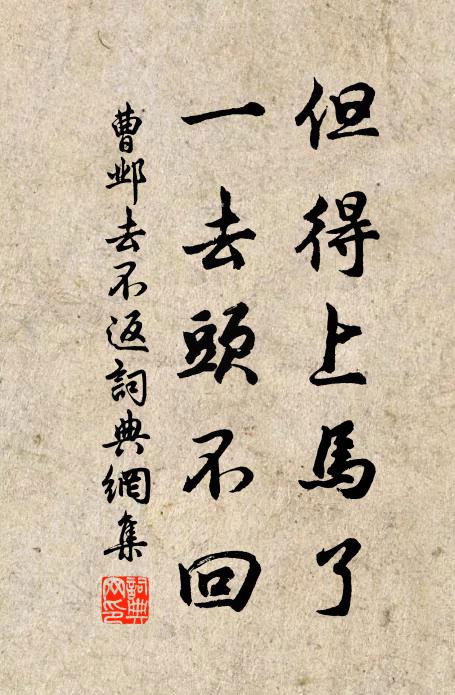 但得上馬了
一去頭不回
曹鄴去不返詞典網集
詞典網印